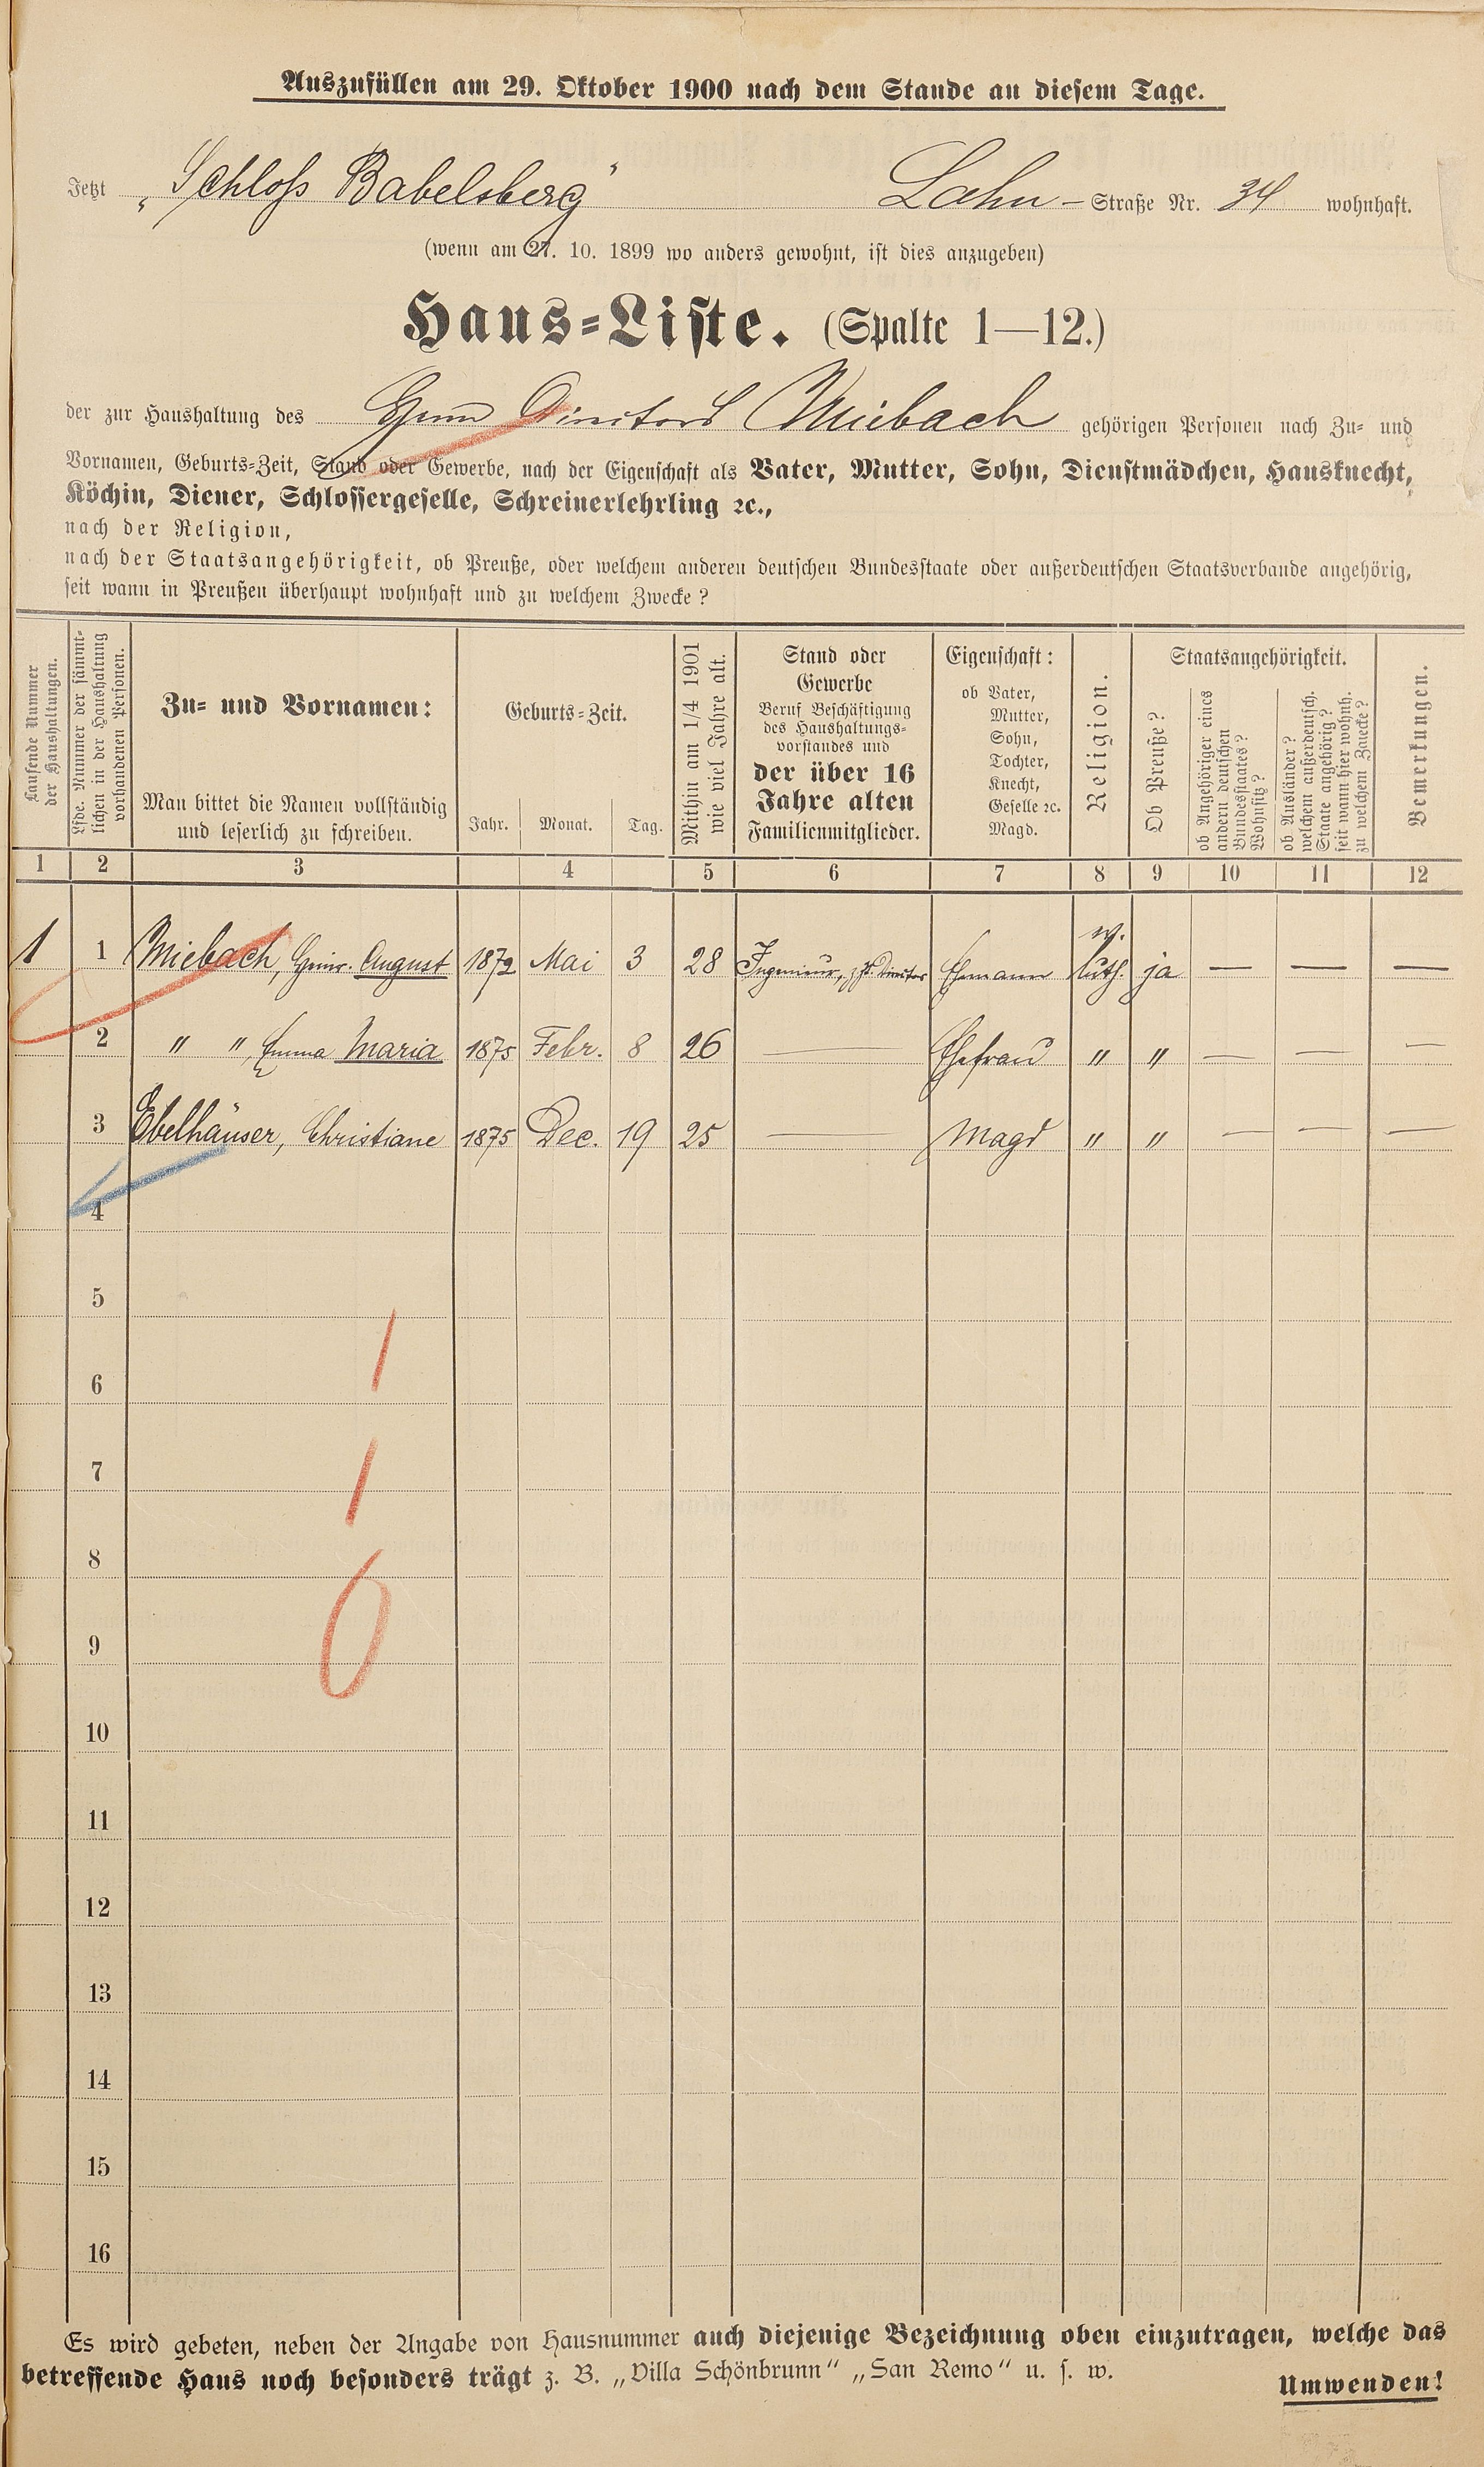 Auszufüllen am 29. Oktober 1900 nach dem Stande an diesem Tage.
Jetzt „Schloß Babelsberg" Lahn-Straße Nr. 34 wohnhaft.
(wenn am 27. 10. 1899 wo anders gewohnt, ist dies anzugeben)
Haus-Liste. (Spalte 1—12.)
der zur Haushaltung des Herrn Directors Miebach gehörigen Personen nach Zu- und
Vornamen, Geburts-Zeit, Stand oder Gewerbe, nach der Eigenschaft als Vater, Mutter, Sohn, Dienstmädchen, Hausknecht,
Köchin, Diener, Schlossergeselle, Schreinerlehrling ꝛc.,
nach der Religion,
nach der Staatsangehörigkeit, ob Preuße, oder welchem anderen deutschen Bundesstaate oder außerdeutschen Staatsverbande angehörig,
seit wann in Preußen überhaupt wohnhaft und zu welchem Zwecke?
Laufende Nummer
der Haushaltungen.
Lfde. Nummer der sämmt-
lichen in der Haushaltung
vorhandenen Personen.
Zu- und Vornamen:
Man bittet die Namen vollständig
und leserlich zu schreiben.
Geburts-Zeit.
Jahr. Monat. Tag.
Mithin am 1/4 1901
wie viel Jahre alt.
Stand oder
Gewerbe
Beruf Beschäftigung
des Haushaltungs-
vorstandes und
der über 16
Jahre alten
Familienmitglieder.
Eigenschaft:
ob Vater,
Mutter,
Sohn,
Tochter,
Knecht,
Geselle ꝛc.
Magd.
Religion.
Staatsangehörigkeit.
Ob Preuße?
ob Angehöriger eines
andern deutschen
Bundesstaates?
Wohnsitz?
ob Ausländer?
welchem außerdeutsch.
Staate angehörig?
seit wann hier wohnh.
zu welchem Zwecke?
Bemerkungen.
1 2 3 4 5 6 7 8 9 10 11 12
1 1 Miebach, Heinr. August 1872 Mai 3 28 Ingenieur, Director Ehemann ev. luth. ja — — —
2 " " Emma Maria 1875 Febr. 8 26 — Ehefrau " " — — —
3 Ebelhäuser, Christiane 1875 Dec. 19 25 — Magd " " — — —
4
5
6
7
8
9
10
11
12
13
14
15
16
1
1
0
Es wird gebeten, neben der Angabe von Hausnummer auch diejenige Bezeichnung oben einzutragen, welche das
betreffende Haus noch besonders trägt z. B. „Villa Schönbrunn" „San Remo" u. s. w.
Umwenden!